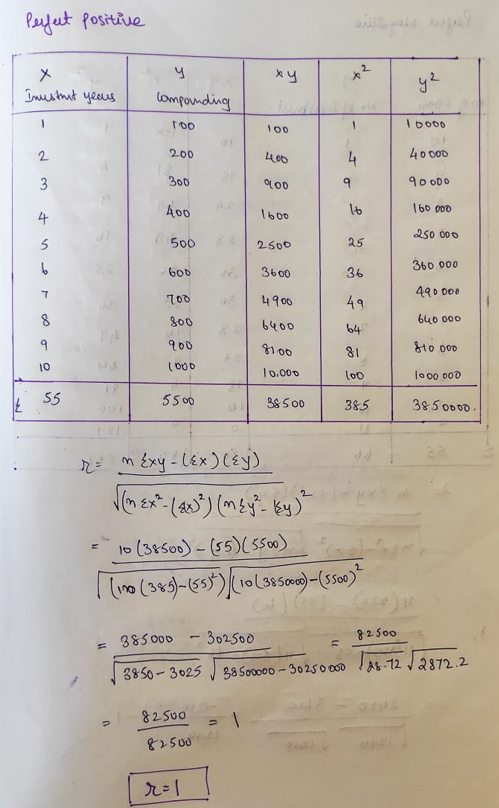 Perfect positive
x y xy x² y²
Invustmt years compounding
1 100 100 1 10000
2 200 400 4 40000
3 300 900 9 90000
4 400 1600 16 160000
5 500 2500 25 250000
6 600 3600 36 360000
7 700 4900 49 490000
8 800 6400 64 640000
9 900 8100 81 810000
10 1000 10,000 100 1000000
Σ 55 5500 38500 385 3850000.
r = nΣxy-(Σx)(Σy)
√(nΣx²-(Σx)²)(nΣy²-(Σy)²
= 10(38500)-(55)(5500)
√(10(385)-(55)²)√(10(3850000)-(5500)²
= 385000 - 302500 = 82500
√3850-3025 √38500000-30250000 √28.72 √2872.2
= 82500 = 1
82500
r=1